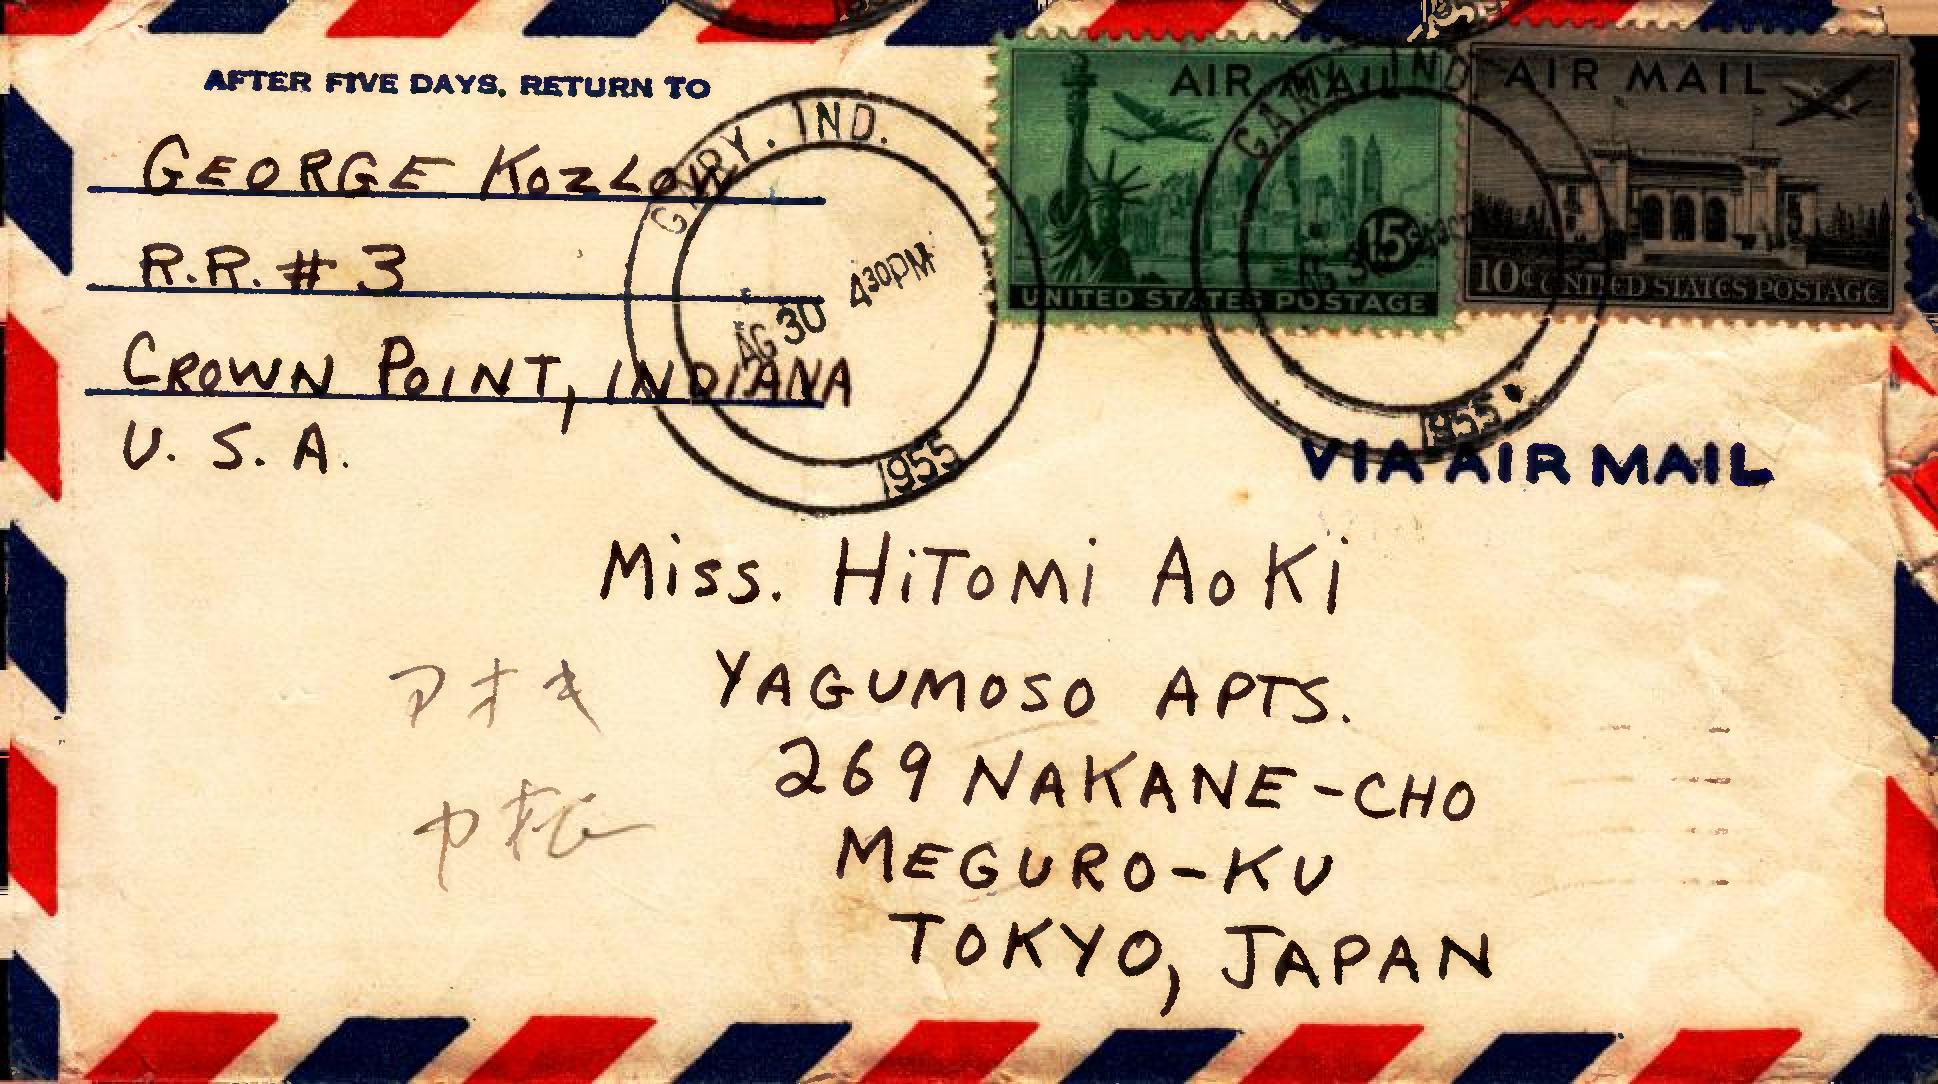 AFTER FIVE DAYS, RETURN TO
GEORGE KOZLOW
R.R. # 3
CROWN POINT, INDIANA
U. S. A.
GARY, IND.
AG 30 4 30PM
1955
AIR MAIL
15¢
UNITED STATES POSTAGE
GARY, IND.
AG 30
1955
AIR MAIL
10¢ UNITED STATES POSTAGE
VIA AIR MAIL
Miss. HiTOMi AOKi
YAGUMOSO APTS.
269 NAKANE-CHO
MEGURO-KU
TOKYO, JAPAN
アオキ